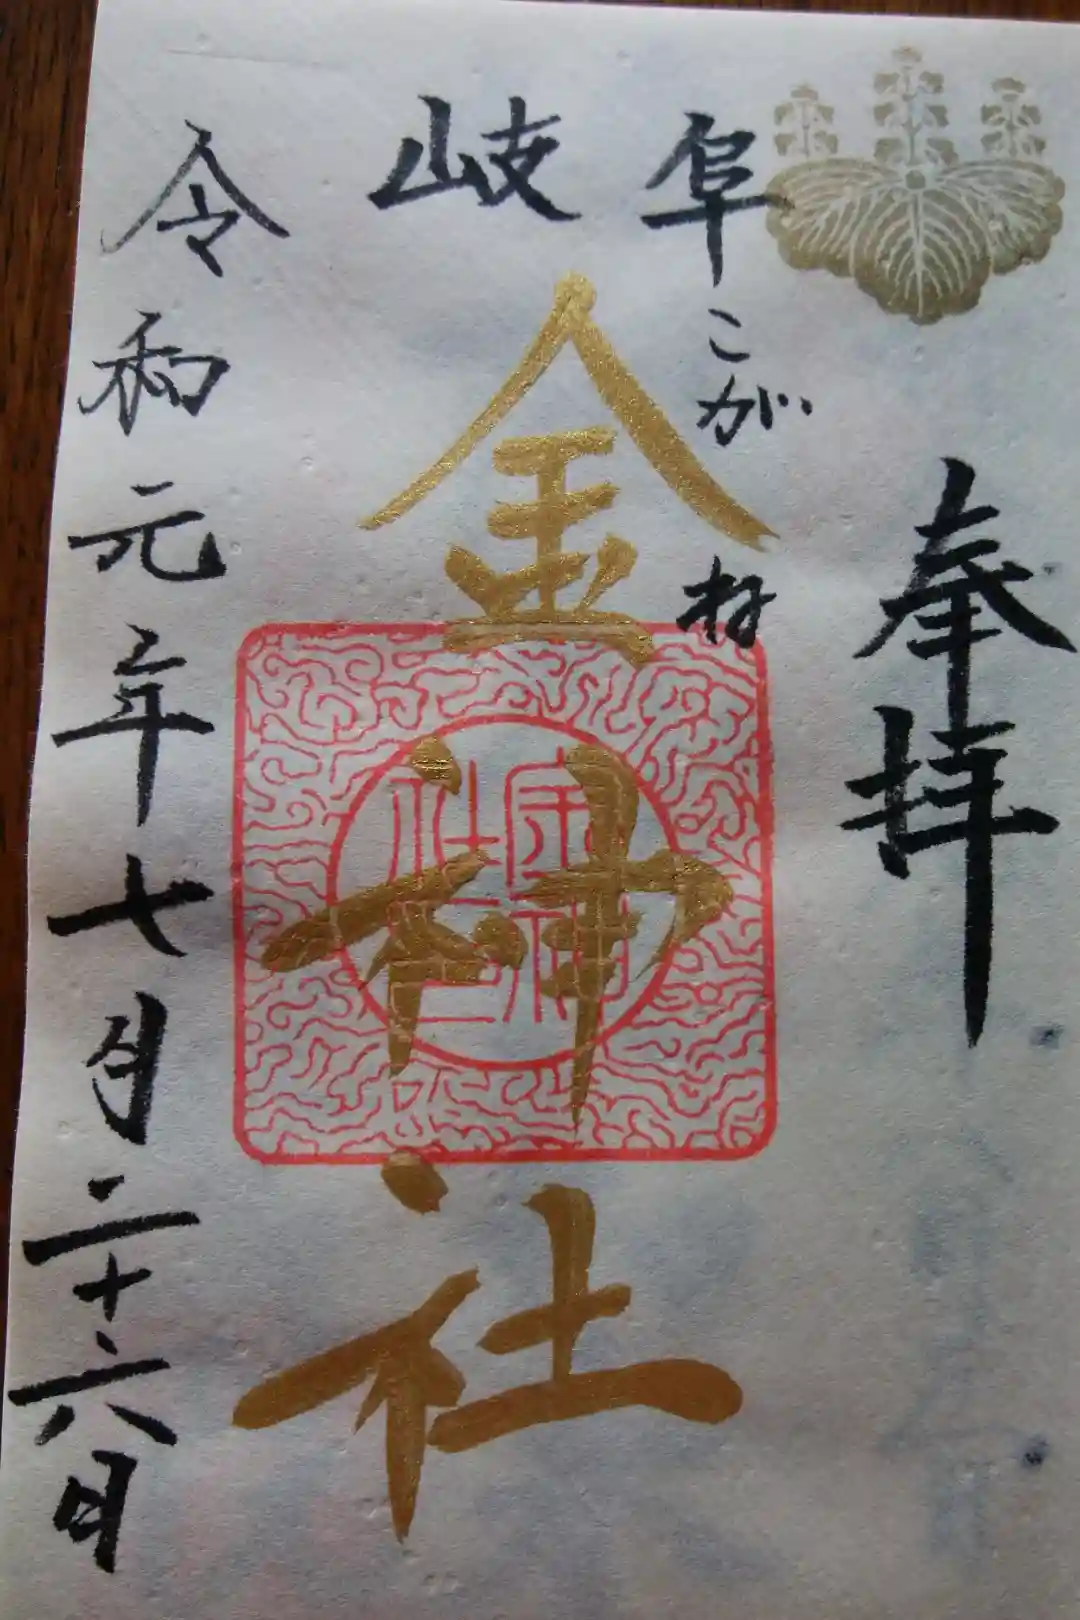 奉拝
岐阜
こがね
金神社
金神社
令和元年七月二十六日